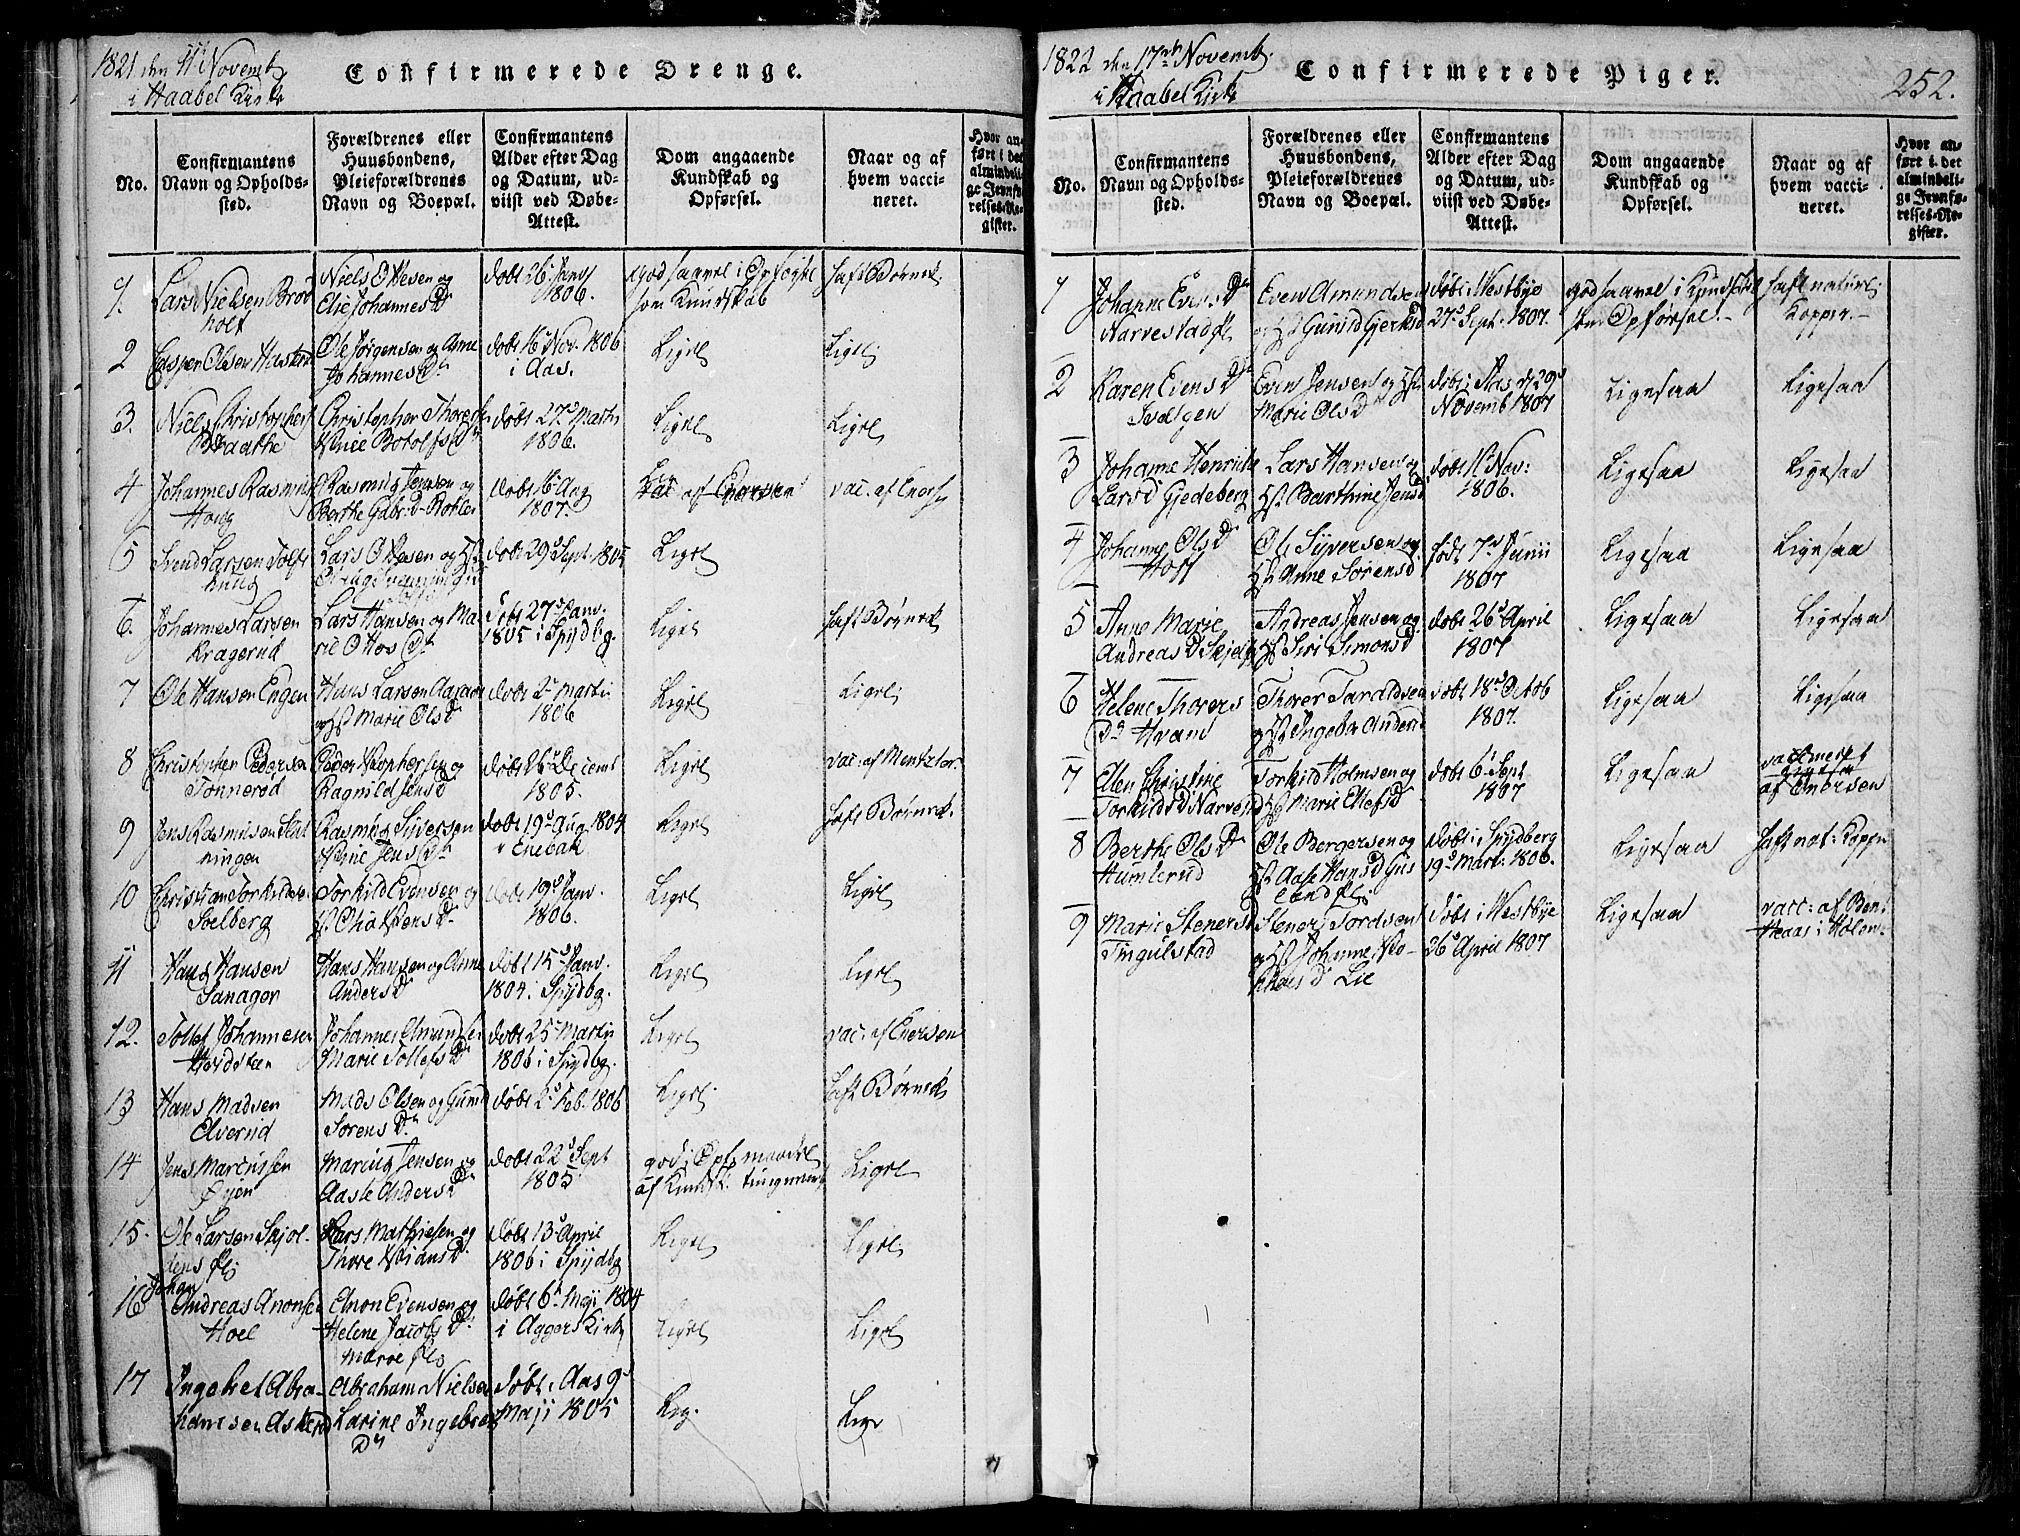 1821 den 11 Novemb
i Kraabel Kirke
Confirmerede Drenge.
No.
Confirmantens
Navn og Opholds-
sted.
Forældrenes eller
Huusbondens,
Pleieforældrenes
Navn og Boepæl.
Confirmantens
Alder efter Dag
og Datum, ud-
viist ved Døbe-
Attest.
Dom angaaende
Kundskab og
Opførsel.
Naar og af
hvem vacci-
neret.
Hvor an-
ført i det
almindeli-
ge Jevnfø-
relses-Re-
gister.
1. Lars Nielsen Brød
holt
Niels Ottesen og
Elie Johannes Dr
døbt 26 Janv
1806.
god saavel i Opførsel
som Kundskab
haft Børnek.
2 Casper Olsen
Ole Jørgensen og Anne
Johannes Dr
døbt 16 Nov. 1806
i Aas.
Ligel
Ligel
3. Niels Christophers
Braathe
Christopher
døbt 27 Martii
1806.
Ligel
Ligel
4 Johannes Rasmus
Houg
Rasmus Jensen og
Berthe Gabr. D
døbt 16 Aug
1807.
vac. af Enersen
5 Svend Larsen
Lars Ottesen og
døbt 29 Sept. 1805
Ligel
6. Johannes Larsen
Kragerud
Lars Hansen og Ma-
rie Ottos Dr
døbt 27 Janv.
1805 i Spydbg.
Ligel
haft Børnek
7 Ole Hansen Engen
Hans Larsen
og Hst Marie Ols D
døbt 2 Martii
1806
Ligel
Ligel
8 Christopher Pedersen
Tonnerød
Peder og
Ragnild Jens D
døbt 26 Decemb
1805.
Ligel
vac. af Mentztor.
9 Jens Rasmusen Slet
ningen
Rasmus Siversen
Jens Dr
døbt 19 Aug. 1804
i Enebak
Ligel
haft Børnek.
10 Christian Torkildsen
Solberg
Torkild Evensen og
døbt 19 Janv.
1806.
Ligel
Ligel
11 Hans Hansen
Sanager
Hans Hansen og Anne
Anders D
døbt 15 Janv.
1804 i Spydbg.
Ligel
Ligel
12. Tollef Johannesen
Johannes Amundsen
Marie Tollefs D
døbt 25 Martii
1806 i Spydbg.
Ligel
vac. af Enersen
13 Hans Madsen
Elverud
Mads Olsen og Gunild
Sorens Dr
døbt 2 Feb. 1806
Ligel
haft Børnek
14 Jens Marcussen
Øyen
Marcus Jensen og
Aaste Anders D
døbt 22 Sept
1805
god i Opf. maadel
af Kundsk.
Ligel
15. Ole Larsen Skjol-
dens
Lars Mathiesen og
Thore
døbt 13 April
1806 i Spydbg
Ligel
Ligel
16 Johan
Andreas Anonsen
Hoel
Anon Evensen og
Helene Jacobs D
døbt 6 Maji 1804
i Aggers Kirke
Ligel
Ligel
17 Ingebret Abra-
hamsen
Abraham Nielsen
Larine Ingebrets
Dr
Døbt i Aas 9
Maji 1805
Lig.
Lige
1822 den 17de Novemb.
i Kraabel Kirke
Confirmerede Piger.
252.
No.
Confirmantens
Navn og Opholds-
sted.
Forældrenes eller
Huusbondens,
Pleieforældrenes
Navn og Boepæl.
Confirmantens
Alder efter Dag
og Datum, ud-
viist ved Døbe-
Attest.
Dom angaaende
Kundskab og
Opførsel.
Naar og af
hvem vacci-
neret.
Hvor an-
ført i det
almindeli-
ge Jevnfø-
relses-Re-
gister.
1 Johanne Evens D
Narvestad
Even Amundsen
og Hst Gunild
døbt i Westbye
27 Sept. 1807.
god saavel i Kundskab
som Opførsel.
haft naturl.
Kopper.
2 Karen Evens D
Even Jensen og Hst
Marie Ols D
døbt i Aas d 29
Novemb 1807
Ligesaa
Ligesaa
3 Johanne Henricke
Lars D Gjedeberg
Lars Hansen og
Hst Barthine Jens D
døbt 1 Nov:
1806.
Ligesaa
Ligesaa
4 Johanne Ols D
Hoff
Ole Syversen og
Hst Anne Sørens D
født 7 Junii
1807
Ligesaa
Ligesaa
5 Anne Marie
Andreas D
Andreas Jensen og
Hst Siri Simons D
døbt 26 April
1807
Ligesaa
Ligesaa
6 Helene Thorers
Dr Hvam
Thorer Taraldsen
og Hst Ingebr Anders
døbt 18 Octob
1807.
Ligesaa
Ligesaa
7 Elen Christine
Torkilds D Narvestad
Torkild Holmsen og
Hst Marie Ellefs D
døbt 6 Sept
1807
Ligesaa
af Enersen
8 Berthe Ols D
Humlerud
Ole Bergersen og
Hst Aase Hans D
døbt i Spydberg
19 Mart. 1806.
Ligesaa
haft nat: Kopper
9 Marie Steners D
Tingulstad
Stener Tordsen
og Hst Johanne
D Lie
Døbt i Westbye
26 April 1807
Ligesaa
vacc: af
i Hølen.